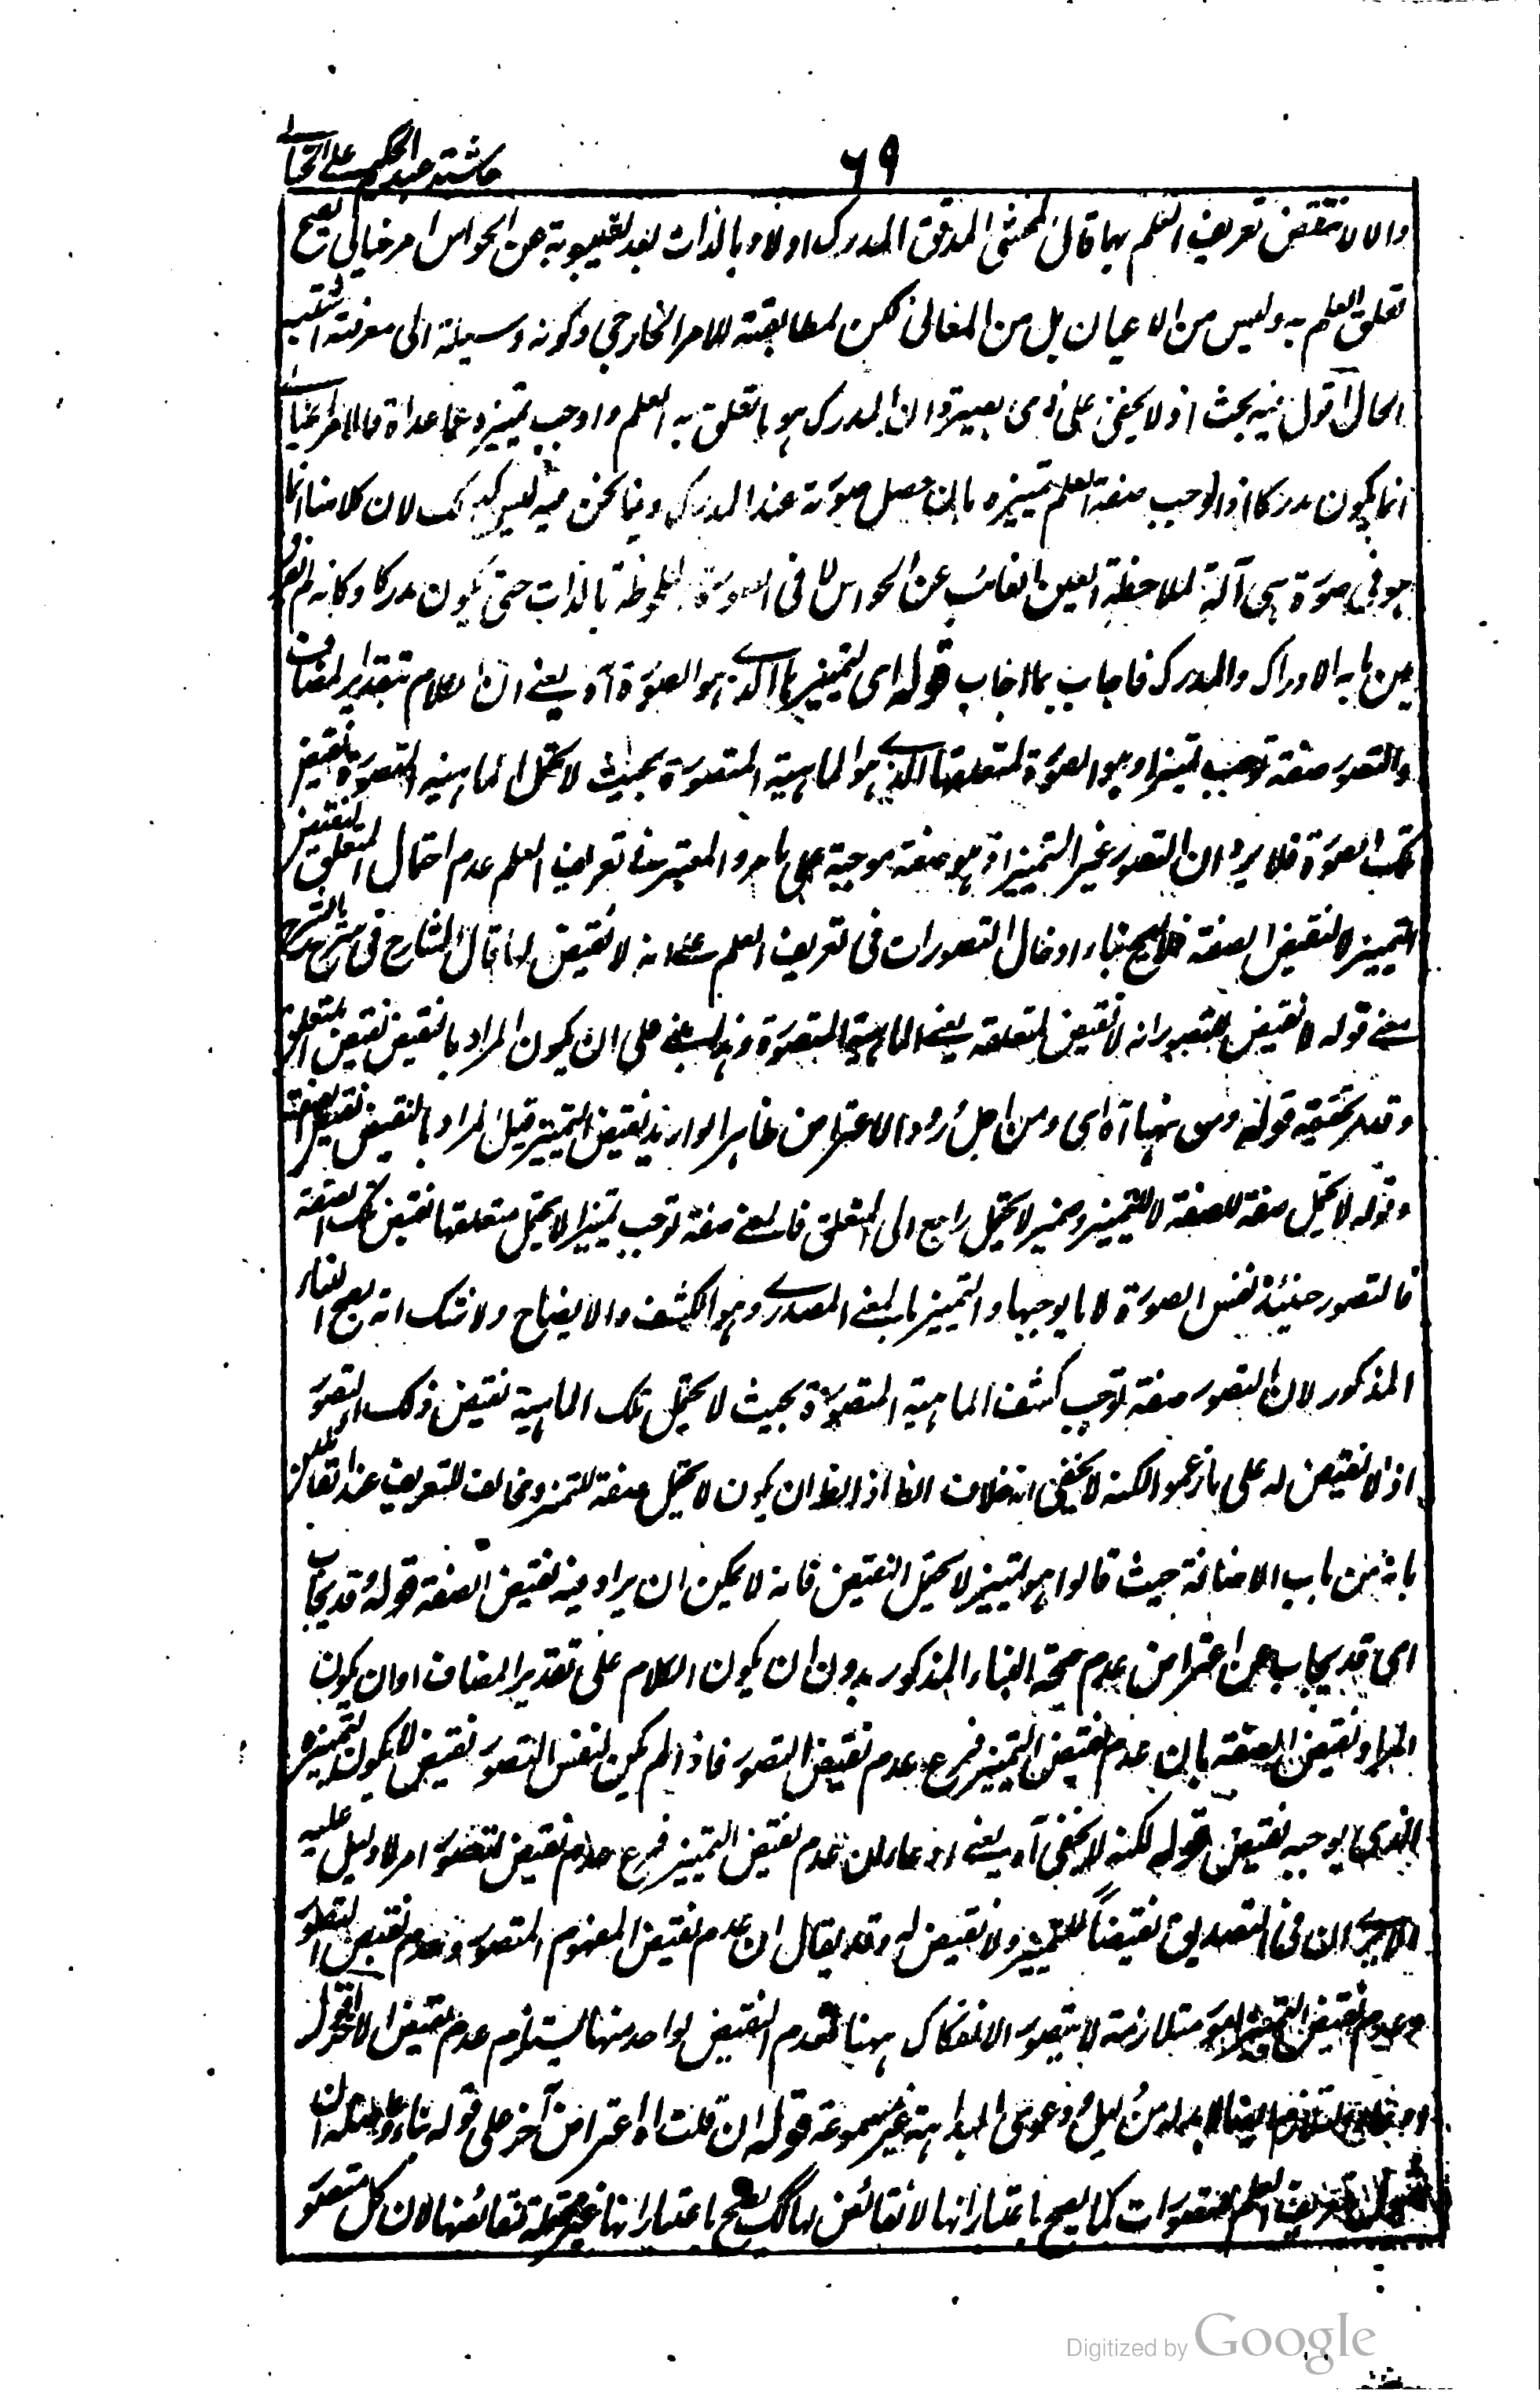 ٦٩
حاشية عبد الحكيم على الخيالي
والا لانتقض تعريف العلم بها قال المحشى المدقق المدرك اولا وبالذات بعد لغيبوبة عن الحواس امر خيالى يصح
تعلق العلم به وليس من الاعيان بل من المعانى لكن لمطابقته للامر الخارجي وكونه وسيلة الى معرفته اشتبه
الحال اقول فيه بحث اذ لا يخفى على ذى بصيرة ان المدرك هو ما تعلق به العلم واوجب تميزه عما عداه فالامر الخيالي
انما يكون مدركا اذا اوجب صفة العلم تميزه بان حصل صورته عند المدرك وفيما نحن فيه ليس كذلك لان كلامنا انما
هو فى صورة هى آلة لملاحظة العين الغائب عن الحواس لا فى الصورة الملحوظة بالذات حتى يكون مدركا وكانه لم يفرق
بين ما به الادراك والمدرك فاجاب بما اجاب قوله اى التميز ما الذى هو الصورة آه يعنى ان الكلام بتقدير المضاف
والتصور صفة توجب تميزا وهو الصورة لمتعلقها الذى هو الماهية المتصورة بحيث لا تحتمل الماهية المتصورة نقيض
تلك الصورة فلا يرد ان التصور غير التميز اذ هو صفة موجبة على ما مر والمعتبر فى تعريف العلم عدم احتمال المتعلق لنقيض
التميز لا لنقيض الصفة فلا يصح بناء ادخال التصورات فى تعريف العلم على انه لا نقيض لها قال الشارح فى شرح الشرح
معنى قوله لا نقيض للتصور انه لا نقيض لمتعلقه يعنى الماهية المتصورة وهذا مبنى على ان يكون المراد بالنقيض نقيض المتعلق
وقد مر تحقيقه قوله ومن ههنا آه اى ومن اجل ورود الاعتراض ظاهرا لو اريد نقيض التميز قيل المراد بالنقيض نقيض الصفة
وقوله لا يحتمل صفة للصفة لا للتميز وضمير لا يحتمل راجع الى المتعلق فالمعنى صفة توجب تميزا لا يحتمل متعلقها نقيض تلك الصفة
فالتصور حينئذ نفس الصورة لا ما يوجبها والتميز بالمعنى المصدرى وهو الكشف والايضاح ولا شك انه يصح البناء
المذكور لان التصور صفة توجب كشف الماهية المتصورة بحيث لا يحتمل تلك الماهية نقيض ذلك التصور
اذ لا نقيض له على ما زعموا لكنه لا يخفى انه خلاف الظ اذ الظ ان يكون لا يحتمل صفة للتميز ومخالف للتعريف عند القائلين
بانه من باب الاضافة حيث قالوا هو تميز لا يحتمل النقيض فانه لا يمكن ان يراد فيه نقيض الصفة قوله وقد يجاب
اى قد يجاب عن اعتراض عدم صحة البناء المذكور بدون ان يكون الكلام على تقدير المضاف او ان يكون
المراد نقيض الصفة بان عدم نقيض التميز فرع عدم نقيض التصور فاذا لم يكن لنفس التصور نقيض لا يكون لتميزه
الذى يوجبه نقيض قوله لكنه لا يخفى آه يعنى ادعاء ان عدم نقيض التميز فرع عدم نقيض التصور امر لا دليل عليه
الا يرى ان فى التصديق نقيضاً للتميز ولا نقيض له وقد يقال ان عدم نقيض المفهوم المتصور وعدم نقيض التصور
وعدم نقيض التميز امور متلازمة لا يتصور الانفكاك بينها فعدم النقيض لواحد منها يستلزم عدم نقيض الآخر
التلازم ايضا لا بد له من دليل ودعوى البداهة غير مسموعة قوله ان قلت اه اعتراض آخر على قوله بناء وحاصله ان
شمول تعريف العلم للتصورات كما يصح باعتبار انها لا نقائض لها كك يصح باعتبار انها غير محتملة نقائضها لان كل متصور
Digitized by Google